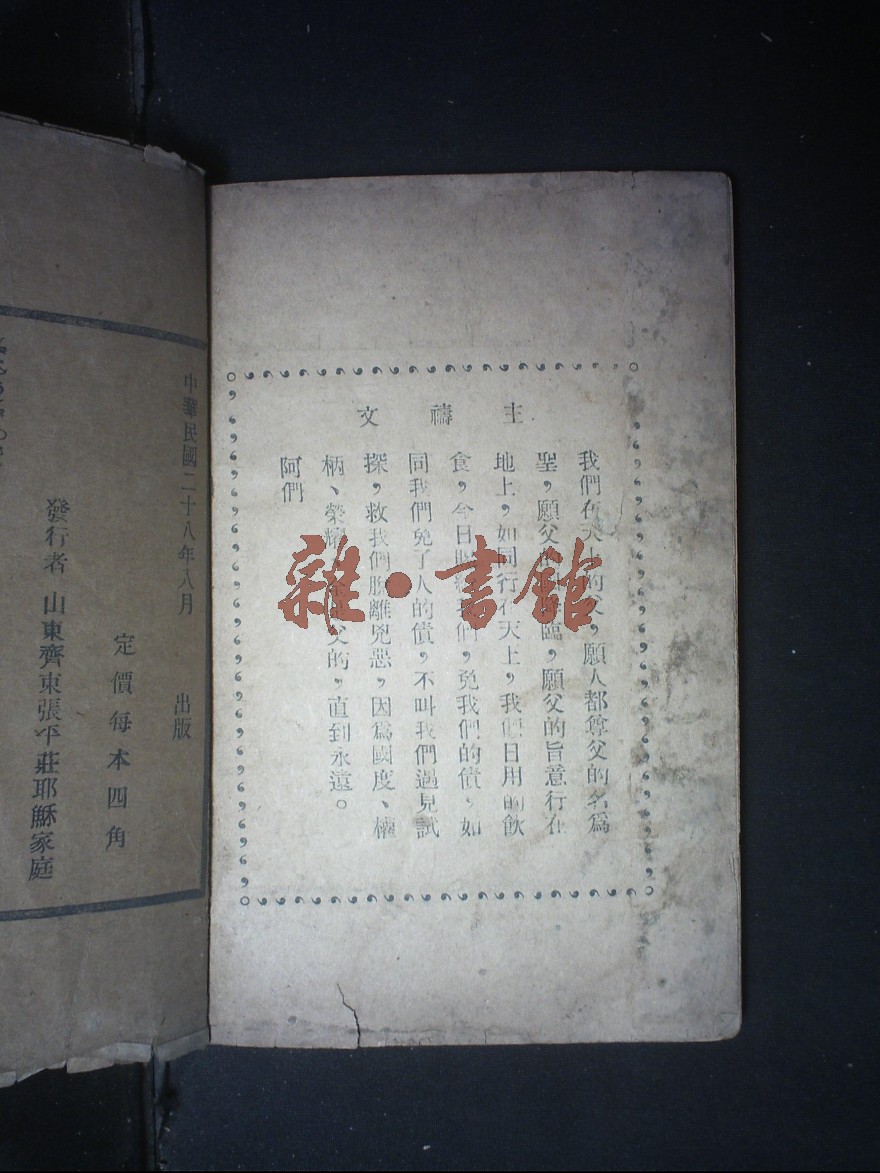 主禱文
我們在天上的父，願人都尊父的名爲
聖，願父的國降臨，願父的旨意行在
地上，如同行在天上，我們日用的飲
食，今日賜給我們，免我們的債，如
同我們免了人的債，不叫我們遇見試
探，救我們脫離兇惡，因爲國度、權
柄、榮耀、全是父的，直到永遠。
阿們
雜·書館
中華民國二十八年八月 出版
定價每本四角
發行者 山東齊東張平莊耶穌家庭